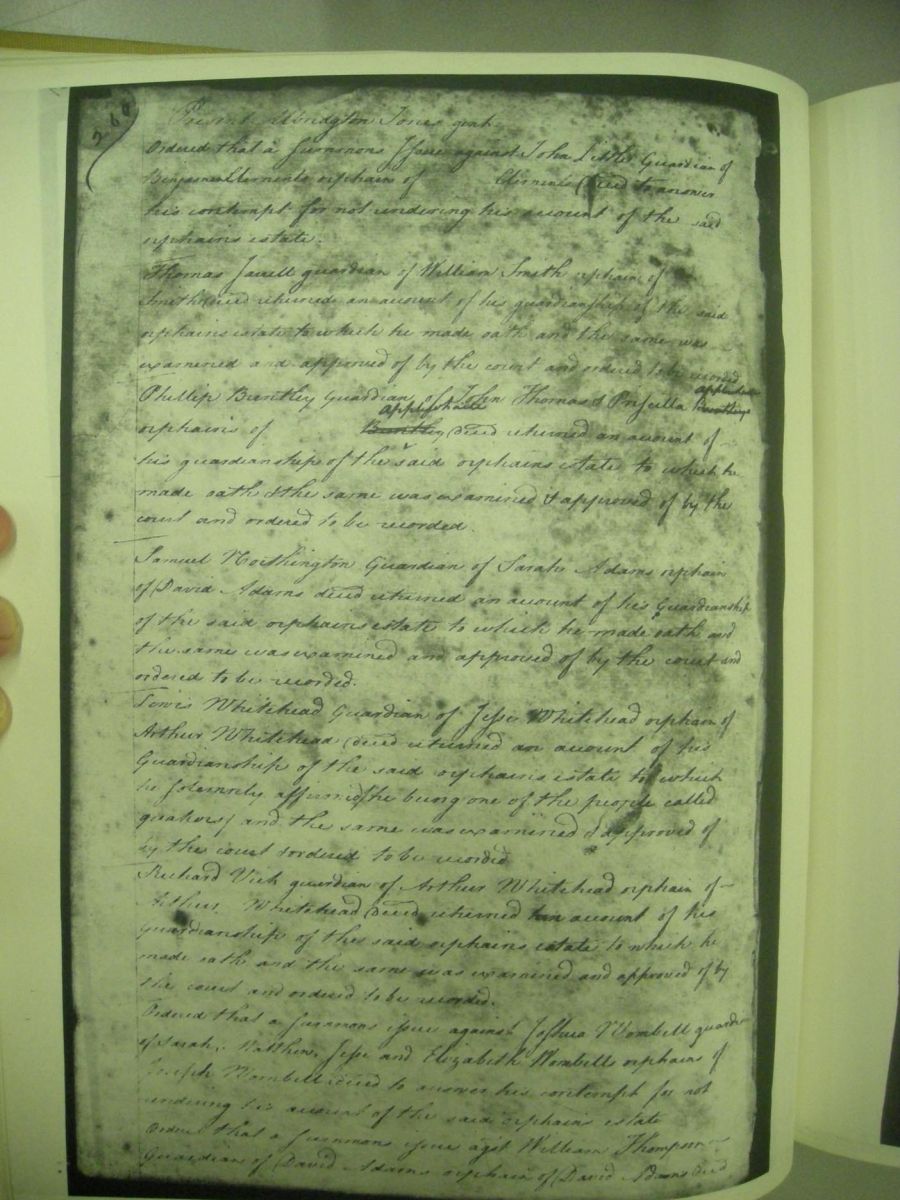 260
Present Albridgton Jones gent
Ordered that a Summons Issue against John Little Guardian of
Benjamen Clements orphain of Clements Deced to answer
his contempt for not rendering his account of the said
orphains estate.
Thomas guardian of William Smith orphain of
Smith deced returned an account of his guardianship of the said
orphains estate to which he made oath and the same was
examened and approved of by the court and ordered to be recorded
Phillip Guardian of John Thomas & Prisella applewhaite
orphains of applewhaite deced returned an account of
his guardianship of the said orphains estate to which he
made oath & the same was examined & approved of by the
court and ordered to be recorded.
Samuel Northington Guardian of Sarah Adams orphain
of David Adams deced returned an account of his Guardianship
of the said orphains estate to which he made oath and
the same was examined and approved of by the court and
ordered to be recorded.
Lewis Whitehead Guardian of Jesse Whitehead orphain of
Arthur Whitehead deced returned an account of his
Guardianship of the said orphains estate to which
he solemnly affirmd (he being one of the people called
quakers) and the same was examined & approved of
by the court & ordered to be recorded
Richard Vick guardian of Arthur Whitehead orphain of
Arthur Whitehead deced returned an account of his
guardianship of the said orphains estate to which he
made oath and the same was examined and approved of by
the court and ordered to be recorded.
Ordered that a Summons issue against Joshua Wombell guardn
of Sarah, Matthew, Jesse and Elizabeth Wombells orphains of
Joseph Wombell deced to answer his contempt for not
rendering his account of the said orphains estate
Ordered that a Summons issue agst William Thompson
Guardian of David Adams orphain of David Adams deced